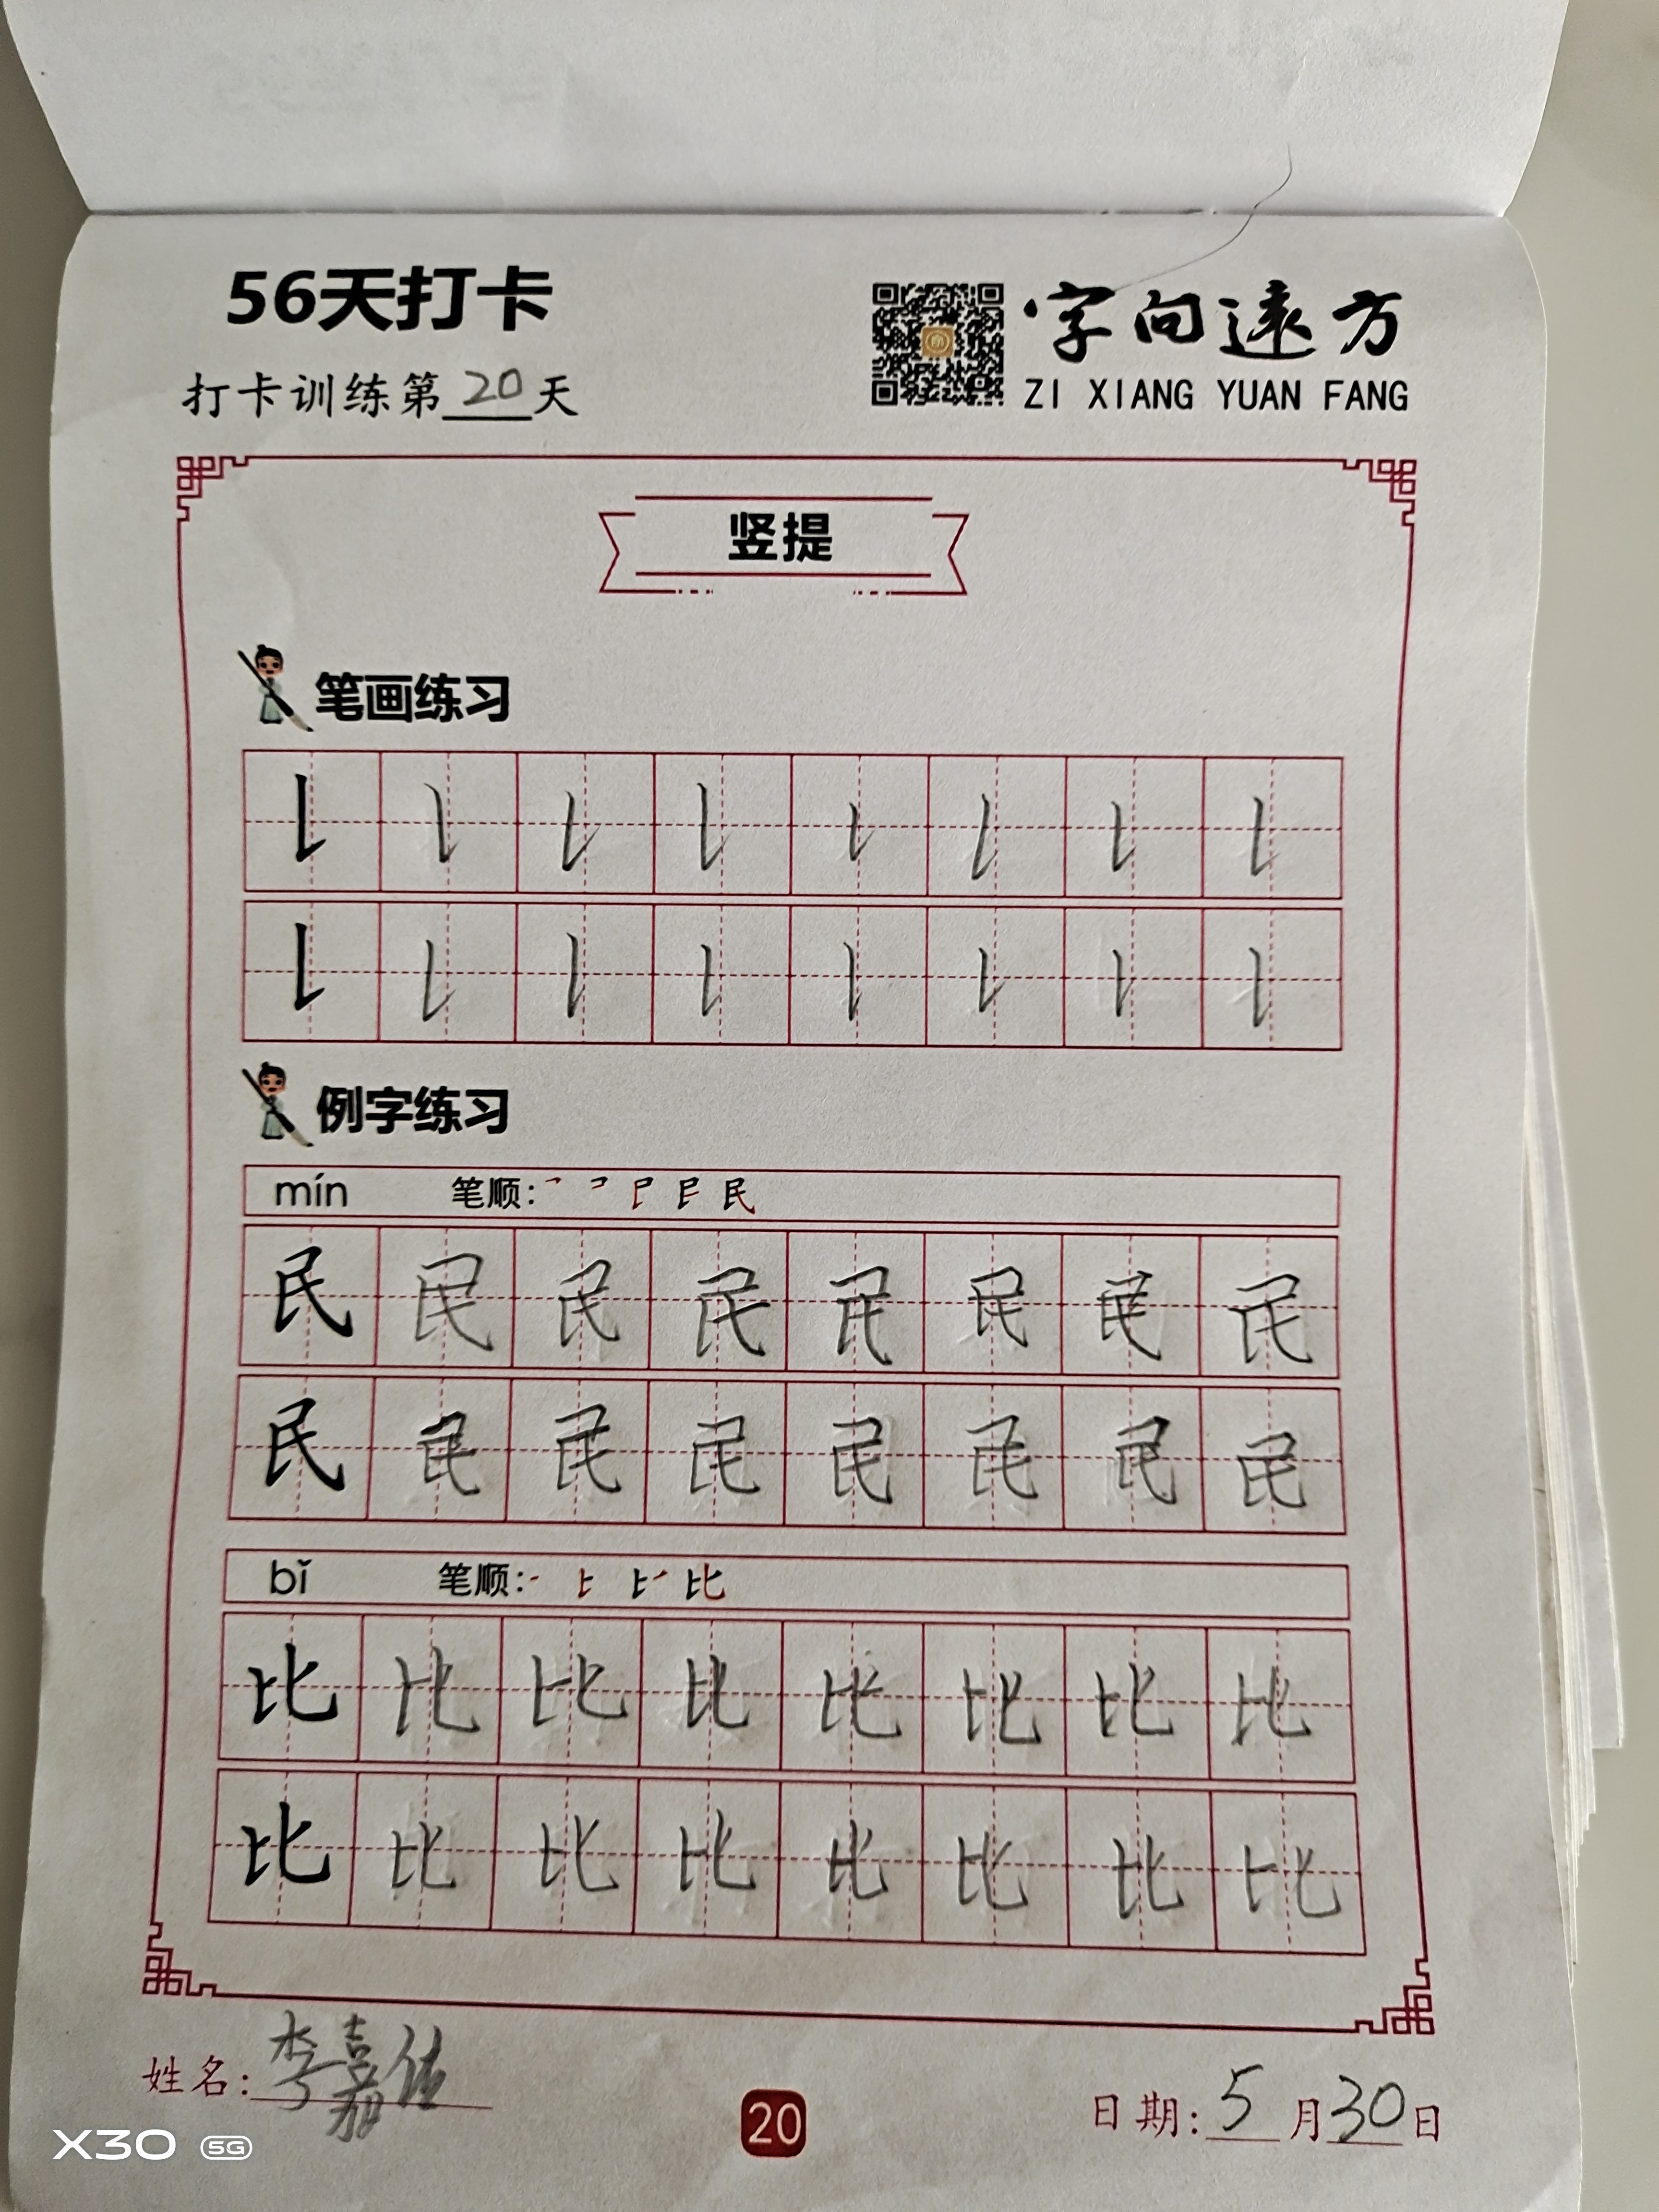 56天打卡
字向遠方
打卡训练第20天
ZI XIANG YUAN FANG
竖提
笔画练习
例字练习
mín 笔顺: 民
民民民民民民民民
民民民民民民民民
bǐ 笔顺: 比
比比比比比比比比
比比比比比比比比
姓名: 李嘉
日期: 5月30日
20
X30 5G